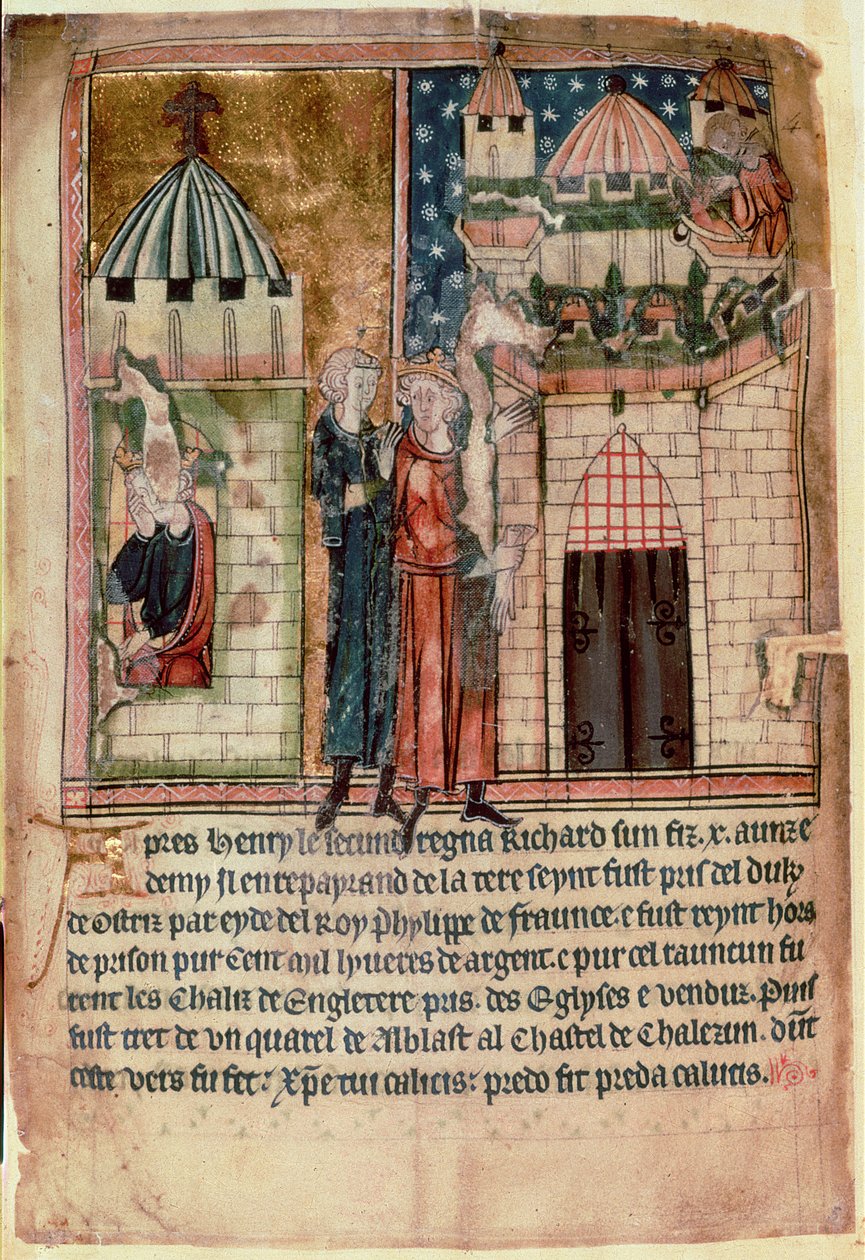 Apres Henry le secund regna Richard sun fiz .x. aunz e
demy Jl en repayrand de la tere seynt fust pris del duk
de Ostriz par eyde del Roy Phylippe de fraunce. e fust reynt hors
de prison pur Cent mil lyueres de argent. e pur cel rauncun fu
rent les Chaliz de Engletere pris. des Eglyses e venduz. Puis
fust tret de vn quarel de Alblast al Chastel de Chalezun. dunt
ceste vers fu fet: Xp̄e tui calicis: predo fit preda calucis.